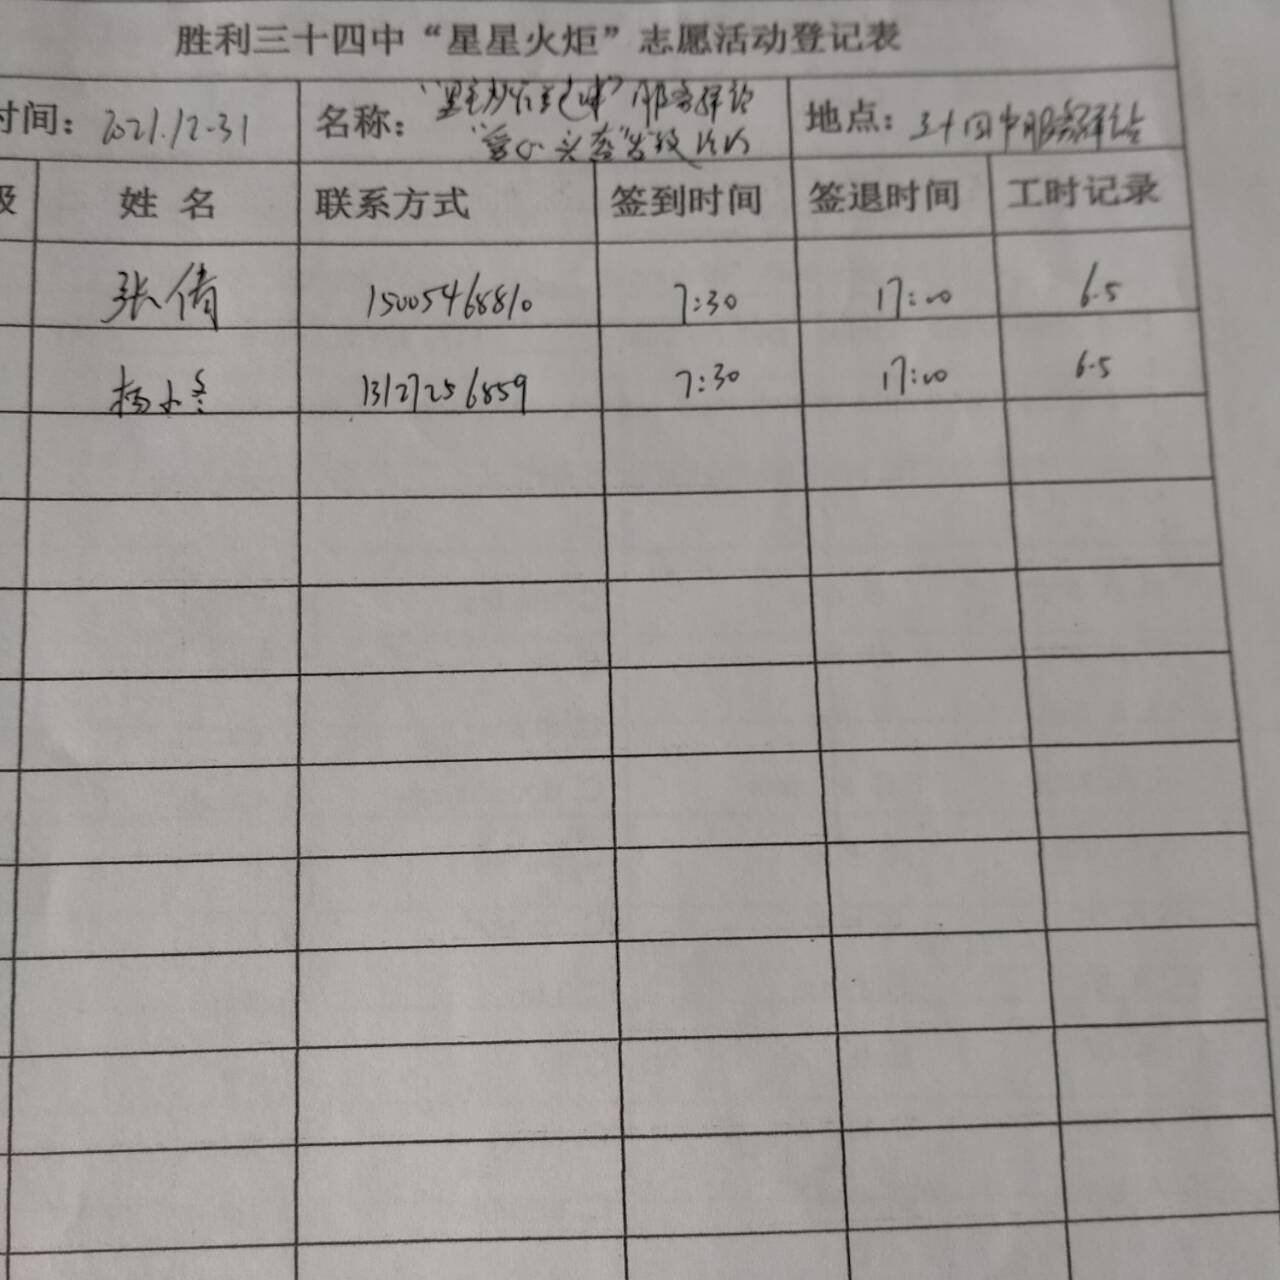 胜利三十四中“星星火炬”志愿活动登记表
时间：2021.12.31 名称：“星星火炬”服务驿站 地点：三十四中服务驿站
“爱心义卖”
级 姓 名 联系方式 签到时间 签退时间 工时记录
张倩 15005468810 7:30 17:00 6.5
杨 13127256859 7:30 17:00 6.5